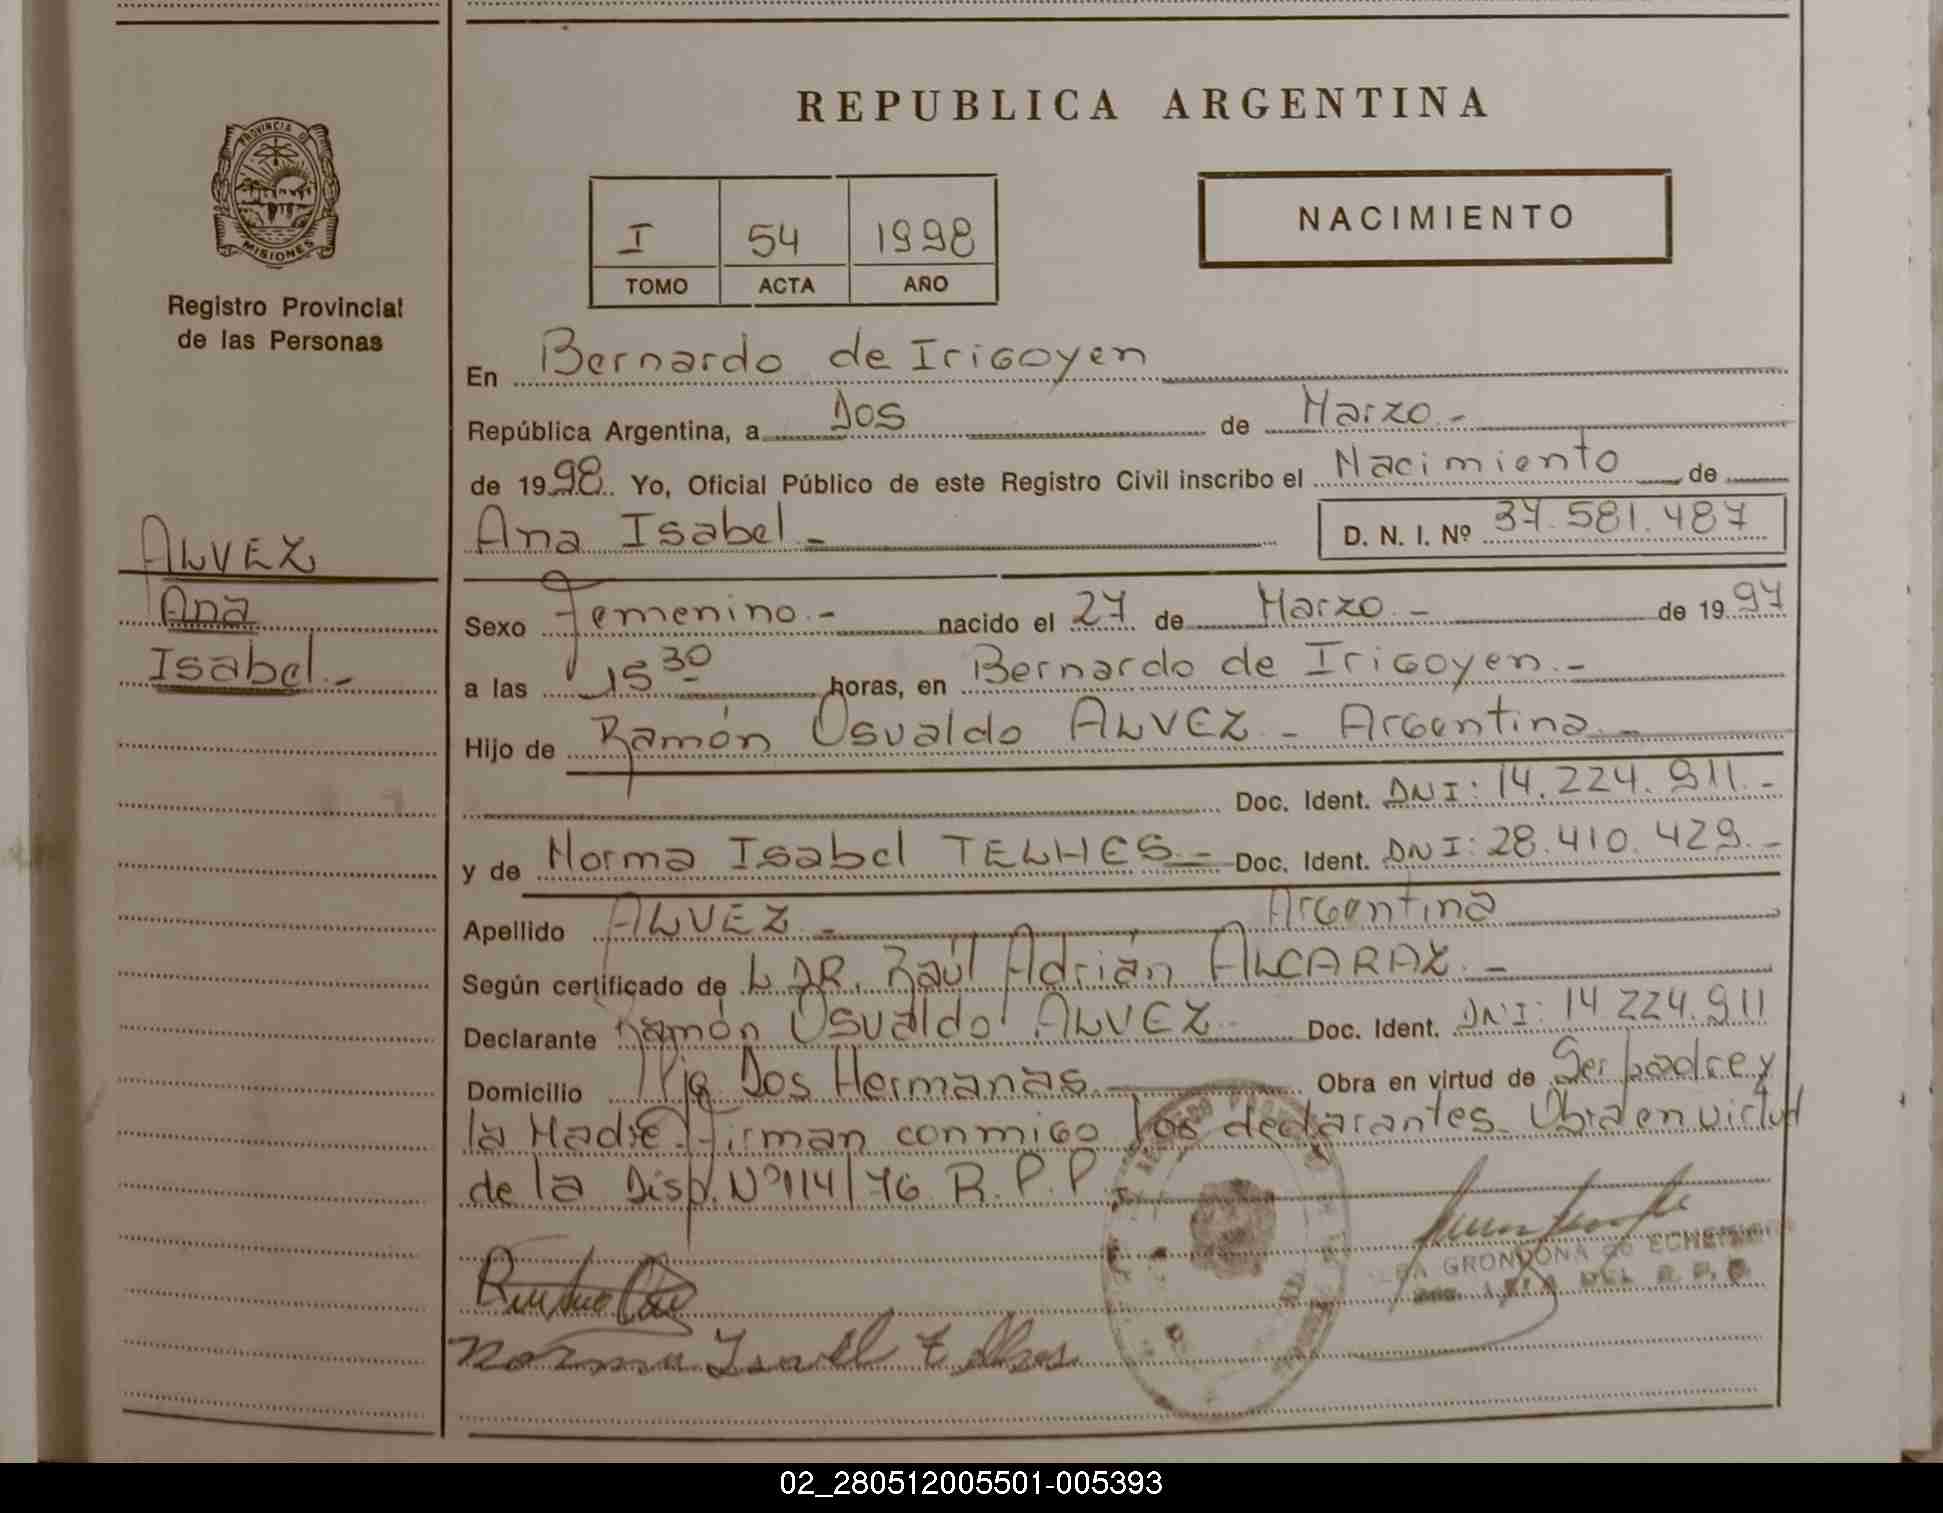 REPUBLICA ARGENTINA
PROVINCIA D
MISIONES
Registro Provincial
de las Personas
I 54 1998
TOMO ACTA AÑO
NACIMIENTO
En Bernardo de Irigoyen
República Argentina, a Dos de Marzo.-
de 1998. Yo, Oficial Público de este Registro Civil inscribo el Nacimiento de
Ana Isabel.- D. N. I. Nº 37.581.487
ALVEZ
Ana
Isabel.-
Sexo Femenino.- nacido el 27 de Marzo.- de 1997
a las 15 30 horas, en Bernardo de Irigoyen.-
Hijo de Ramón Osvaldo ALVEZ - Argentina.-
Doc. Ident. DNI: 14.224.911.-
y de Norma Isabel TELHES.- Doc. Ident. DNI: 28.410.429.-
Argentina
Apellido ALVEZ.-
Según certificado de L DR. Raúl Adrián ALCARAZ.-
Declarante Ramón Osvaldo ALVEZ.- Doc. Ident. DNI: 14 224.911
Domicilio Pje Dos Hermanas. Obra en virtud de Ser padre y
la Madre firman conmigo los declarantes. Obra en virtud
de la Disp. Nº 114/76 R.P.P.
GRONDONA de
DEL R. P. P.
Norma Isabel Telhes
02_280512005501-005393